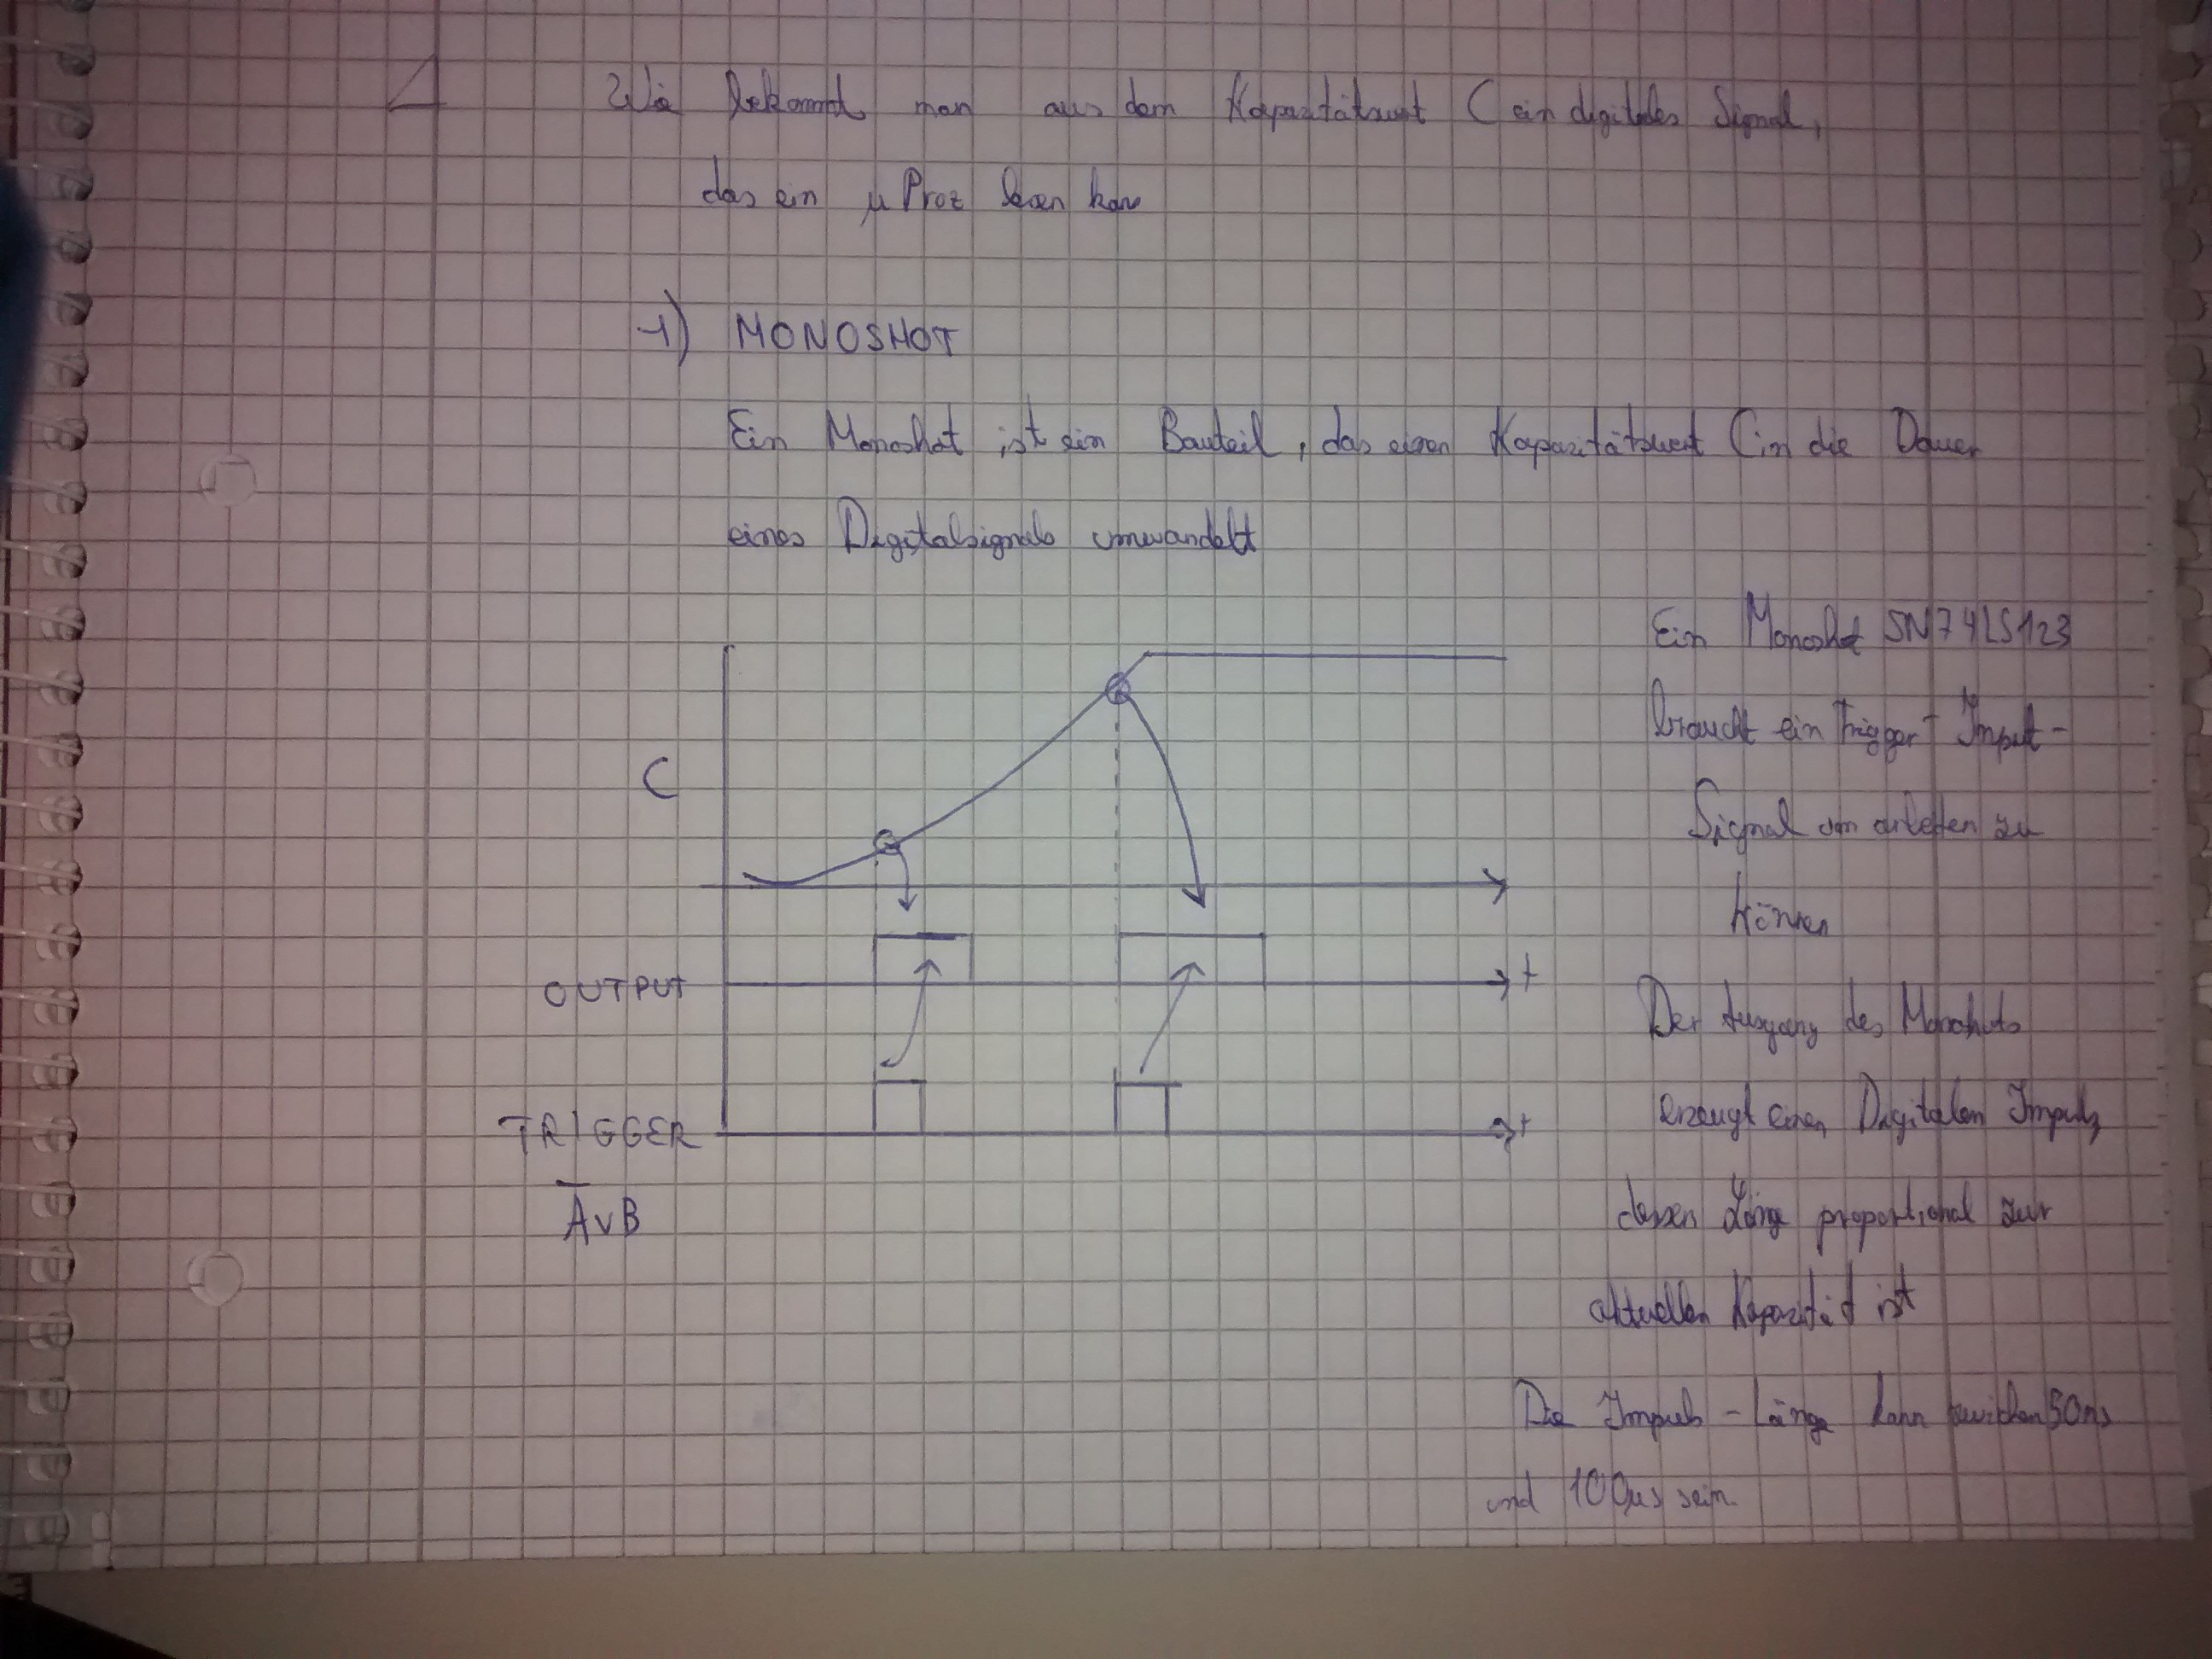 Wie bekommt man aus dem Kapazitätswert C ein digitales Signal,
das ein µProz lesen kann
1) MONOSHOT
Ein Monoshot ist ein Bauteil, das einen Kapazitätswert C in die Dauer
eines Digitalsignals umwandelt
Ein Monoshot SN74LS123
braucht ein Trigger-Input-
Signal um arbeiten zu
können
C
OUTPUT
t
Der Ausgang des Monoshots
erzeugt einen Digitalen Impuls
TRIGGER
t
ĀvB
dessen Länge proportional zur
aktuellen Kapazität ist
Die Impuls-Länge kann zwischen 50ns
und 100us sein.